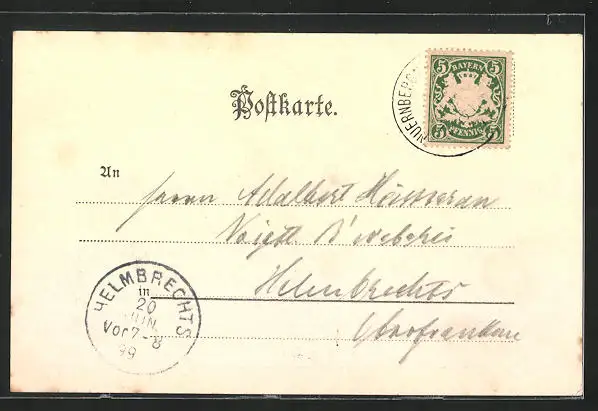 Postkarte.
5 BAYERN 5
5 PFENNIG 5
NUERNBERG
An
Herrn Adalbert
Voigtl B'weberei
in Helmbrechts
Oberfranken
HELMBRECHTS
20
JUN.
Vor 7-8
99